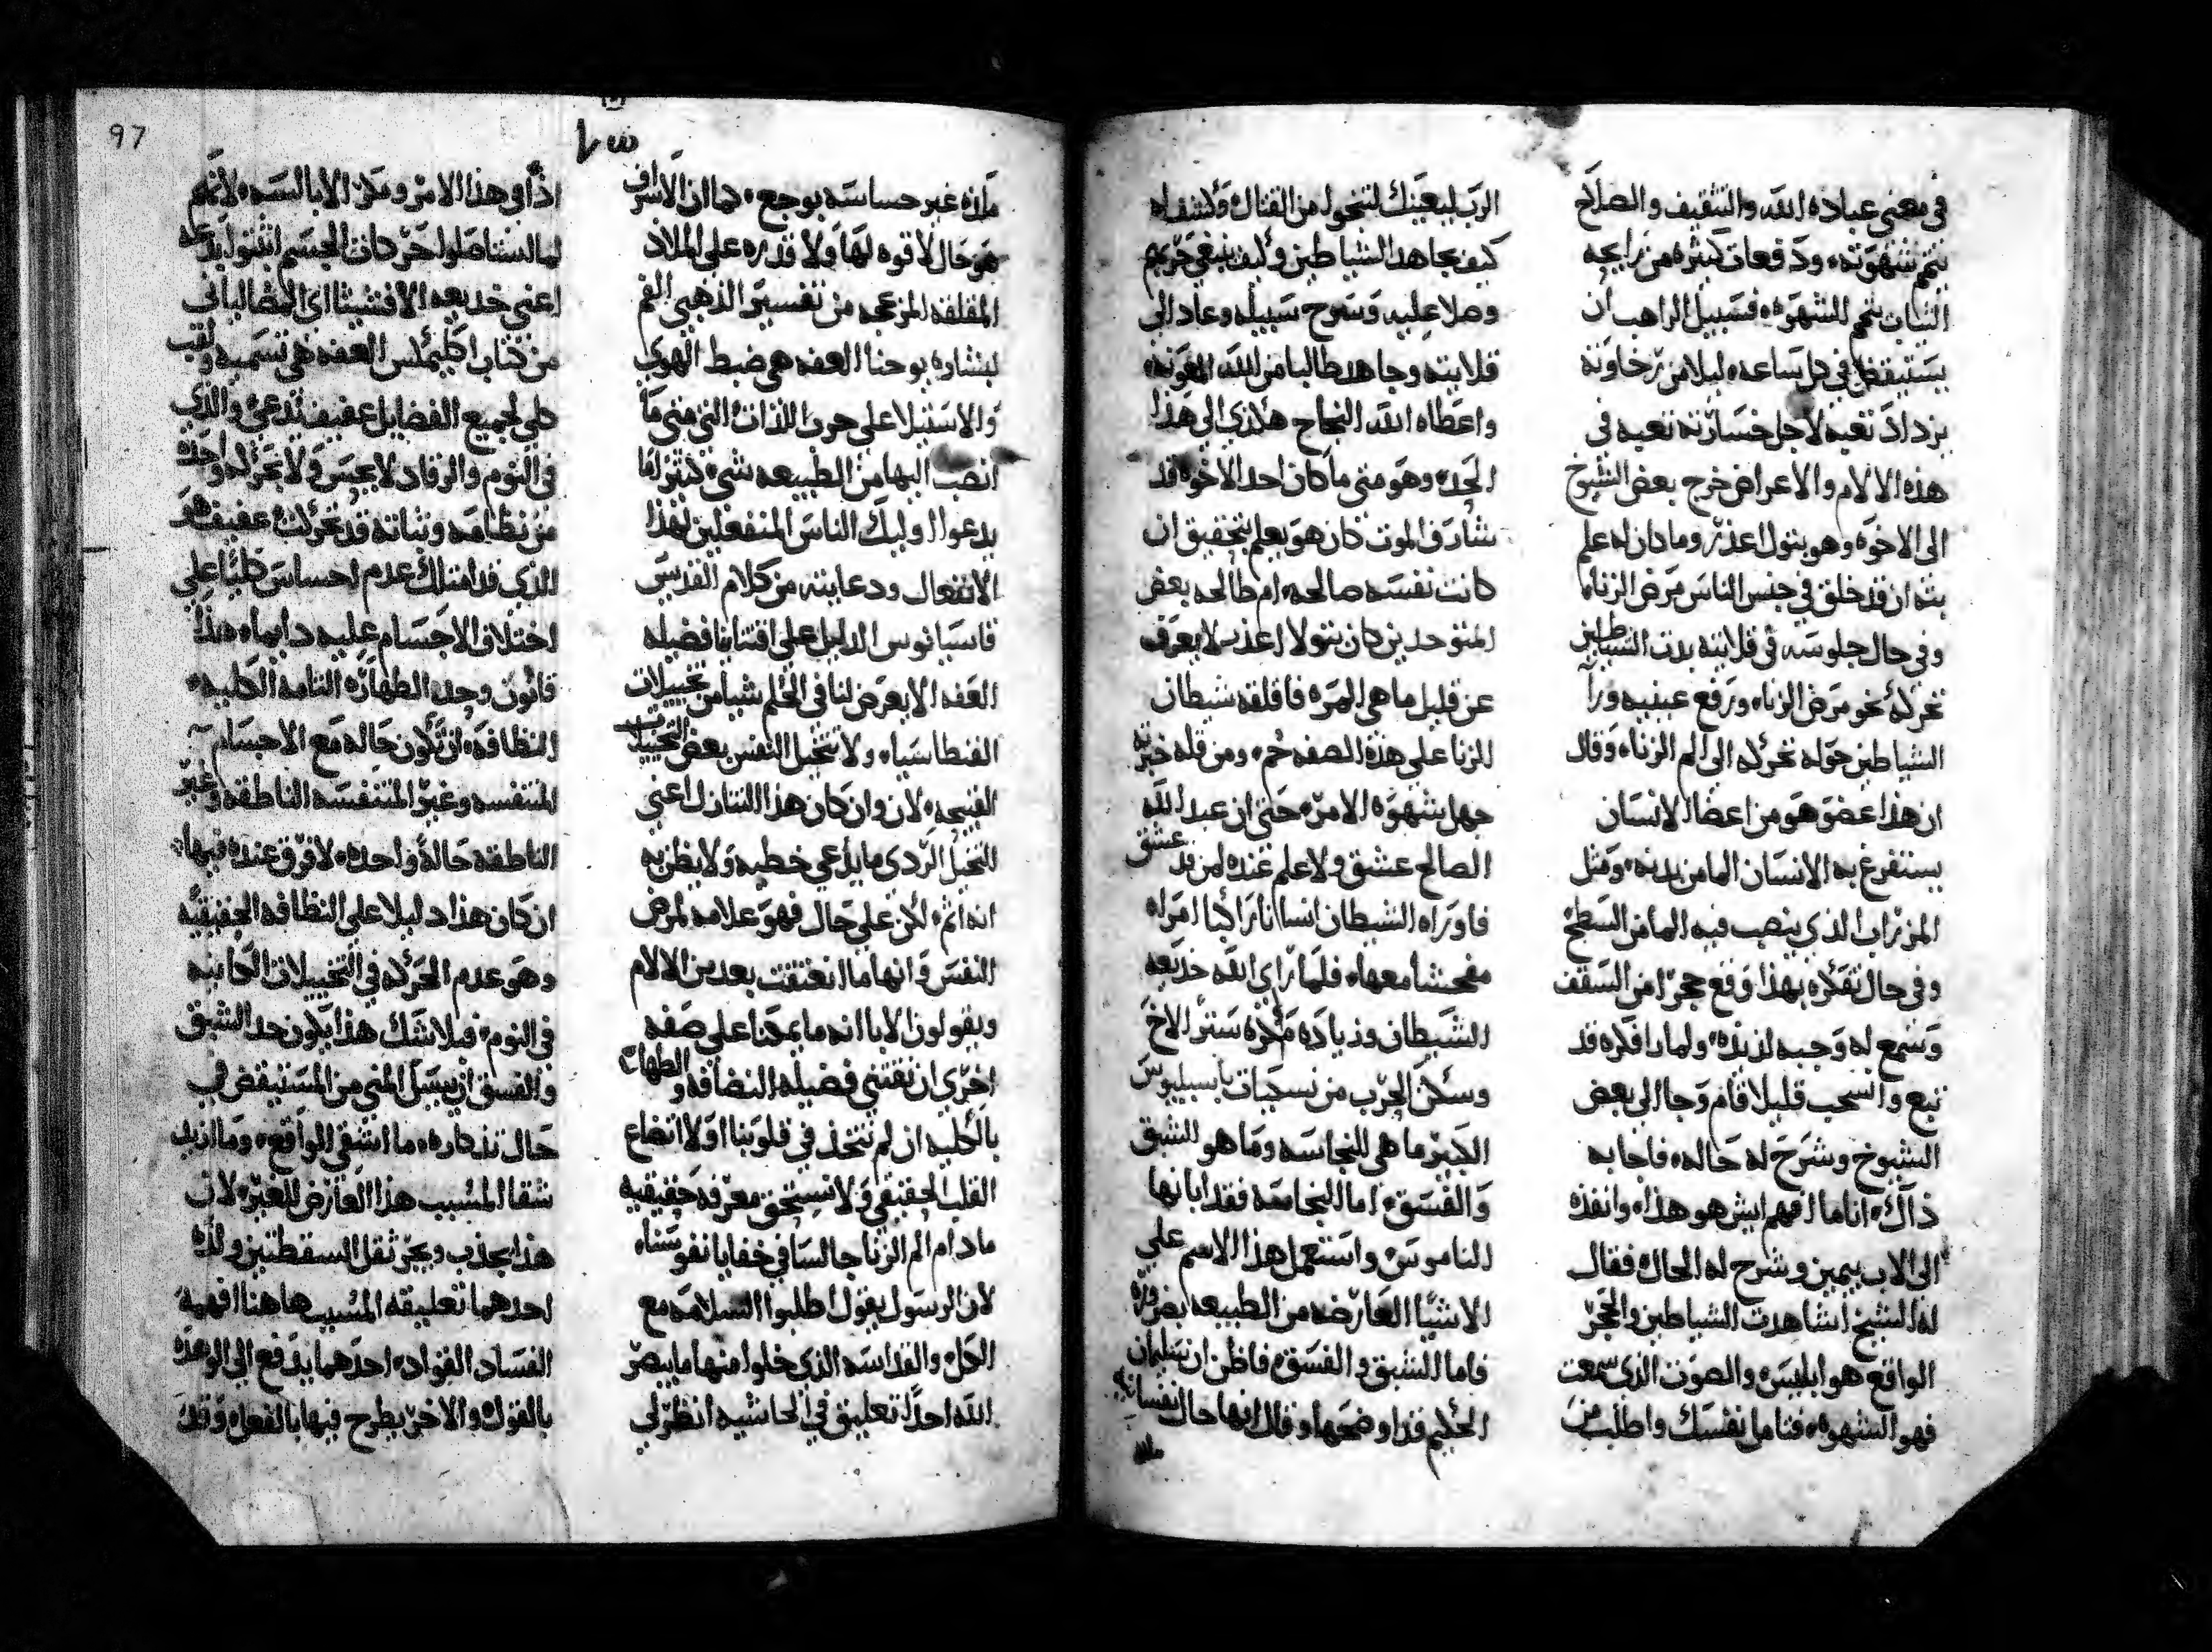 في معنى عباده الله والتثقيف والصلاح
تتم شهوته، ودفعات كثيره من رايحه
الثياب تتم الشهوه، فسبيل الراهب ان
يستيقظ في كل ساعه، ليلا من رخاوته
يزداد تعبه لاجل خسارته تعبه في
هذه الالام والاعراض خرج بعض الشيوخ
الى الاخوه وهو يتول اعذر، وما كان له علم
بته ان قد خلق في جنس الناس مرض الزنا
وفي حال جلوسه في قلايته بدت الشياطين
تحركه نحو مرض الزنا، ورفع عينيه ورآ
الشياطين حوله تحركه الى الم الزناء، وقال
ان هذا عضو هو من اعضا الانسان
يستفرغ به الانسان الما من بدنه، ومثل
المزراب الذي ينصب فيه الما من السطح
وفي حال تفكره بهذا وقع حجرا من السقف
وسمع له وجبه لذيذه، ولما رافكره قد
تبع وانسحب قليلا قام وجا الى بعض
الشيوخ وشرح له حاله، فاجابه
ذاك، انا ما افهم ايش هو هذا، وانفذه
الى الاب بيمين وشرح له الحال، فقال
له الشيخ اشاهدت الشياطين والحجر
الواقع هو ابليس، والصوت الذى سمعت
فهو الشهوه، فتامل نفسك واطلب من
الرب ليعينك لتنجوا من القتال، وكشف له
كيف يجاهد الشياطين وكيف ينبغي حربهم
وصلا عليه وسرح سبيله وعاد الى
قلايته وجاهد طالبا من الله المعونه،
واعطاه الله النجاح هكذي الى هذا
الحد، وهو متى ما كان احد الاخوه قد
شارف الموت كان هو يعلم بتحقيق ان
كانت نفسه صالحه، ام طالحه بعض
المتوحدين كان يتولا اعذب لا يعرف
عن قليل ما هي المره فاقلقه شيطان
الزنا على هذه الصفه حم، ومن قله خبرته
جهل شهوة الامر، حتى ان عبد الله
الصالح عشق ولا علم عنده لمن قد عشق
فاوراه الشيطان انسانا راكبا امراه
مفحشا معها، فلما راي الله خديعه
الشيطان وزياده مكره ستر الاخ
وسكن الحرب من نسكيات باسيليوس
الكبير ما هي النجاسه وما هو الشبق
والفسق، اما النجاسه فقد ابانها
الناموس واستعمل هذا الاسم على
الاشيا العارضه من الطبيعه بضروره
فاما الشبق والفسق، فاظن ان سليمان
الحكيم قد اوضحها وقال انها حال نفسانيه
ملاذ
ملذه غير حساسه بوجع، كما ان الاسراف
هو حال لا قوه لها ولا قدره على الملاذ
المقلقه المزعجه من تفسير الذهبي الفم
لبشاره يوحنا العفه هي ضبط الهوي
والاستيلا على حرب اللذات التي متى ما
انصب اليها من الطبيعه شي كثير لها
يدعوا اوليك الناس المنفعلين لهذا
الانفعال ودعابته من كلام القديس
قاسيانوس الدليل على اقتنايا فضيله
العفه الا يعرض لنا في الحلم شيا من تخييلات
الفنطاسيا، ولا تتخيل النفس بعض التخييلات
القبيحه، لان وان كان هذا التنازل اعني
التخيل الردي ما يدعي خطيه ولا يظن به
انه اثم، لكن على حال فهو علامه لمرض
النفس وانها ما انعتقت بعد من الالام
ويقولون الابا انه ما يمكنا على صفه
اخري ان نقتني فضيله النضافه والطهاره
بالكليه ان لم نتخذ في قلوبنا اولا اتضاع
القلب الحقيقي ولا نستحق معرفه حقيقيه
ما دام الم الزنا جالسا في خفايا نفوسنا،
لان الرسول يقول اطلبوا السلامه مع
الكل، والقداسه الذي خلوا منها ما يبصر
الله احدا، تعليق في الحاشيه انظر لي
اذا في هذا الامر وملان الا باالسه، لانهم
لما استاصلوا حركات الجسم اثبتوا يد عه
اعني خديعه الافنشيثا اى المضالباني
من كتاب اكليمكس العفه هي تسميه ولقب
كلي لجميع الفضايل عفيف تدعي والذي
في النوم والرقاد لا يحس ولا بحركه واحده
من نظامه وثباته قد تحركت، عفيف هو
الذي قد امتلك عدم احساس كليا على
اختلاف الاجسام عليه دايما، هذا
قانون وحد الطهاره التامه الكليه،
النظافه، ان تكون حاله مع الاجسام
المتنفسه وغير المتنفسه الناطقه وغير
الناطقه حالة واحده، لا فرق عنده فيها،
ان كان هذا دليلا على النظافه الحقيقيه
وهو عدم الحركه في التخييلات الكاينه
في النوم، فبلا شك هذا يكون حد الشبق
والفسق ان يسيل المني من المستيقض في
حال تذكاره، ما اشقي الواقع، وما ازيد
شقا المسبب هذا العارض للغير، لان
هذا يجذب ويجر ثقل السقطتين ولذة
احدهما تعليقه المسبب هاهنا افهمه
الفساد الفواد، احدهما يدفع الى الوهده
بالقول، والاخر يطرح فيها بالفعل، وقلت
97